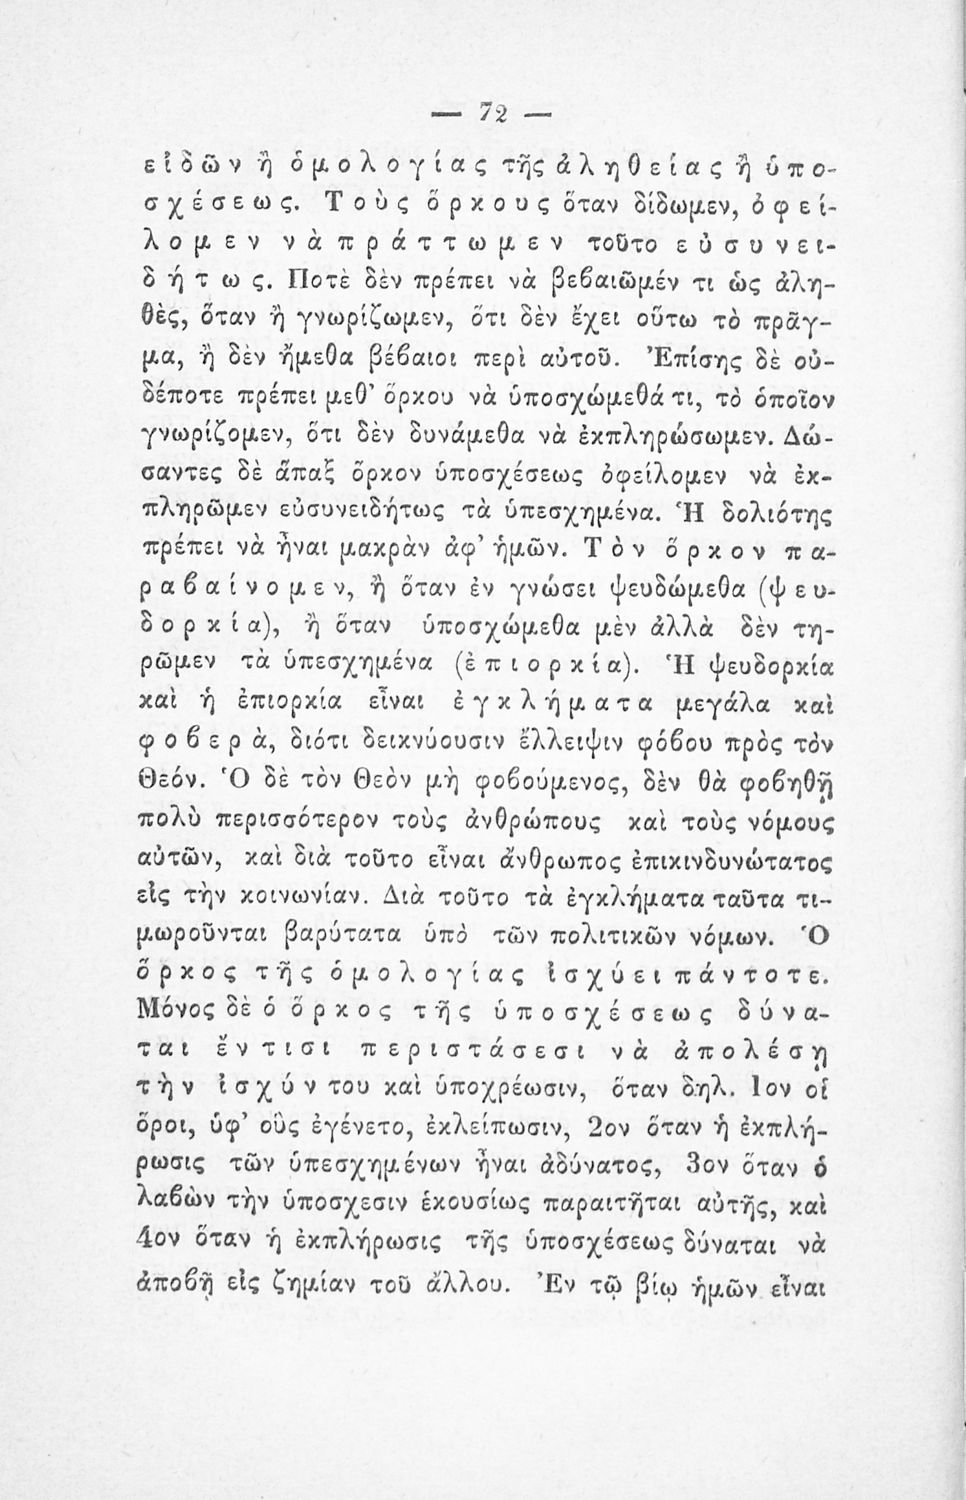 — 72 —
εἰδῶν ἢ ὁμολογίας τῆς ἀληθείας ἢ ὑπο-
σχέσεως. Τοὺς ὅρκους ὅταν δίδωμεν, ὀφεί-
λομεν νὰ πράττωμεν τοῦτο εὐσυνει-
δήτως. Ποτὲ δὲν πρέπει νὰ βεβαιῶμέν τι ὡς ἀλη-
θὲς, ὅταν ἢ γνωρίζωμεν, ὅτι δὲν ἔχει οὕτω τὸ πρᾶγ-
μα, ἢ δὲν ἤμεθα βέβαιοι περὶ αὐτοῦ. Ἐπίσης δὲ οὐ-
δέποτε πρέπει μεθ’ ὅρκου νὰ ὑποσχώμεθά τι, τὸ ὁποῖον
γνωρίζομεν, ὅτι δὲν δυνάμεθα νὰ ἐκπληρώσωμεν. Δώ-
σαντες δὲ ἅπαξ ὅρκον ὑποσχέσεως ὀφείλομεν νὰ ἐκ-
πληρῶμεν εὐσυνειδήτως τὰ ὑπεσχημένα. Ἡ δολιότης
πρέπει νὰ ἦναι μακρὰν ἀφ’ ἡμῶν. Τὸν ὅρκον πα-
ραβαίνομεν, ἢ ὅταν ἐν γνώσει ψευδώμεθα (ψευ-
δορκία), ἢ ὅταν ὑποσχώμεθα μὲν ἀλλὰ δὲν τη-
ρῶμεν τὰ ὑπεσχημένα (ἐπιορκία). Ἡ ψευδορκία
καὶ ἡ ἐπιορκία εἶναι ἐγκλήματα μεγάλα καὶ
φοβερὰ, διότι δεικνύουσιν ἔλλειψιν φόβου πρὸς τὸν
Θεόν. Ὁ δὲ τὸν Θεὸν μὴ φοβούμενος, δὲν θὰ φοβηθῇ
πολὺ περισσότερον τοὺς ἀνθρώπους καὶ τοὺς νόμους
αὐτῶν, καὶ διὰ τοῦτο εἶναι ἄνθρωπος ἐπικινδυνώτατος
εἰς τὴν κοινωνίαν. Διὰ τοῦτο τὰ ἐγκλήματα ταῦτα τι-
μωροῦνται βαρύτατα ὑπὸ τῶν πολιτικῶν νόμων. Ὁ
ὅρκος τῆς ὁμολογίας ἰσχύει πάντοτε.
Μόνος δὲ ὁ ὅρκος τῆς ὑποσχέσεως δύνα-
ται ἔν τισι περιστάσεσι νὰ ἀπολέσῃ
τὴν ἰσχύν του καὶ ὑποχρέωσιν, ὅταν δηλ. 1ον οἱ
ὅροι, ὑφ’ οὓς ἐγένετο, ἐκλείπωσιν, 2ον ὅταν ἡ ἐκπλή-
ρωσις τῶν ὑπεσχημένων ἦναι ἀδύνατος, 3ον ὅταν ὁ
λαβὼν τὴν ὑποσχεσιν ἑκουσίως παραιτῆται αὐτῆς, καὶ
4ον ὅταν ἡ ἐκπλήρωσις τῆς ὑποσχέσεως δύναται νὰ
ἀποβῇ εἰς ζημίαν τοῦ ἄλλου. Ἐν τῷ βίῳ ἡμῶν εἶναι